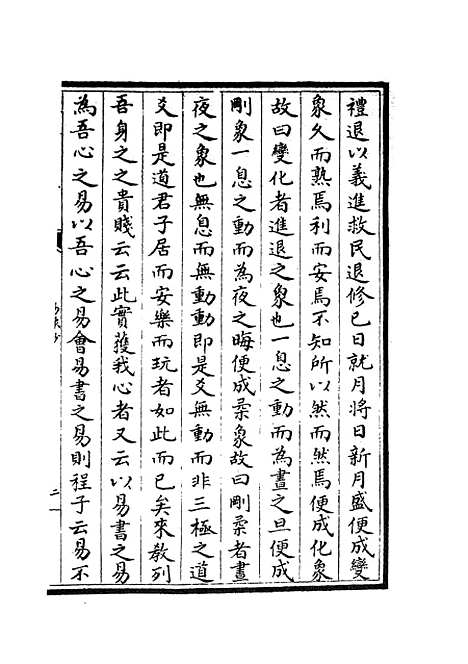 禮退以義進救民退修已日就月將日新月盛便成變
象久而熟焉利而安焉不知所以然而然焉便成化象
故曰變化者進退之象也一息之動而為晝之旦便成
剛象一息之動而為夜之晦便成柔象故曰剛柔者晝
夜之象也無息而無動動即是爻無動而非三極之道
爻即是道君子居而安樂而玩者如此而已矣來教列
吾身之之貴賤云云此實獲我心者又云以易書之易
為吾心之易以吾心之易會易書之易則程子云易不
二